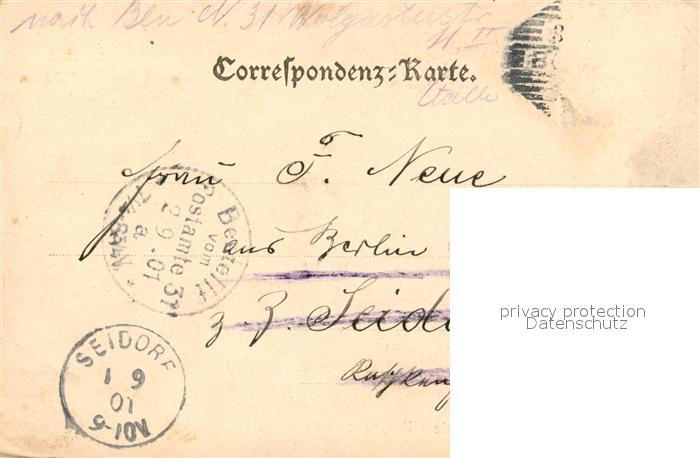 nach Bln N. 31 Wolgasterstr
11 II
Correspondenz-Karte.
Frau F. Neue
aus Berlin
z. Z. Seido
Bestellt
vom
Postamte 31
2 9. 01
a
SEIDORF
1 9
01
5-10V
privacy protection
Datenschutz